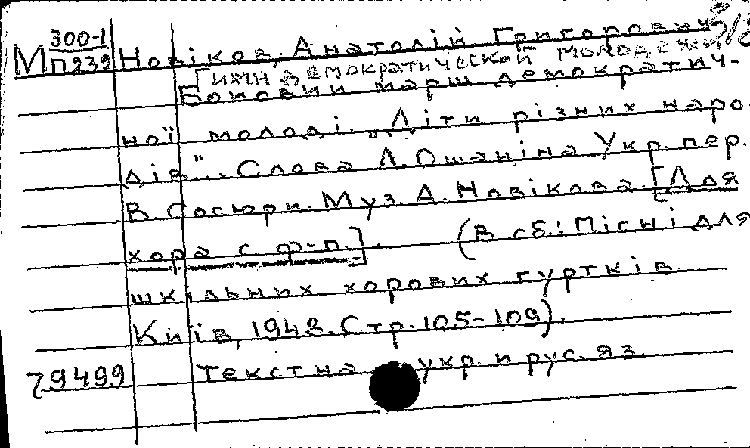 М 300-1 Новіков, Анатолій Григорович
П239 [Гимн демократической молодежи]
Бойовий марш демократич-
ної молоді. „Діти різних наро-
дів". Слова Л. Ошаніна Укр. пер.
В. Сосюри. Муз. А. Новікова. [Для
хора с ф-п.]. (В сб.: Пісні для
шкільних хорових гуртків
Київ, 1948. Стр. 105-109).
79499 Текст на укр. и рус. яз.